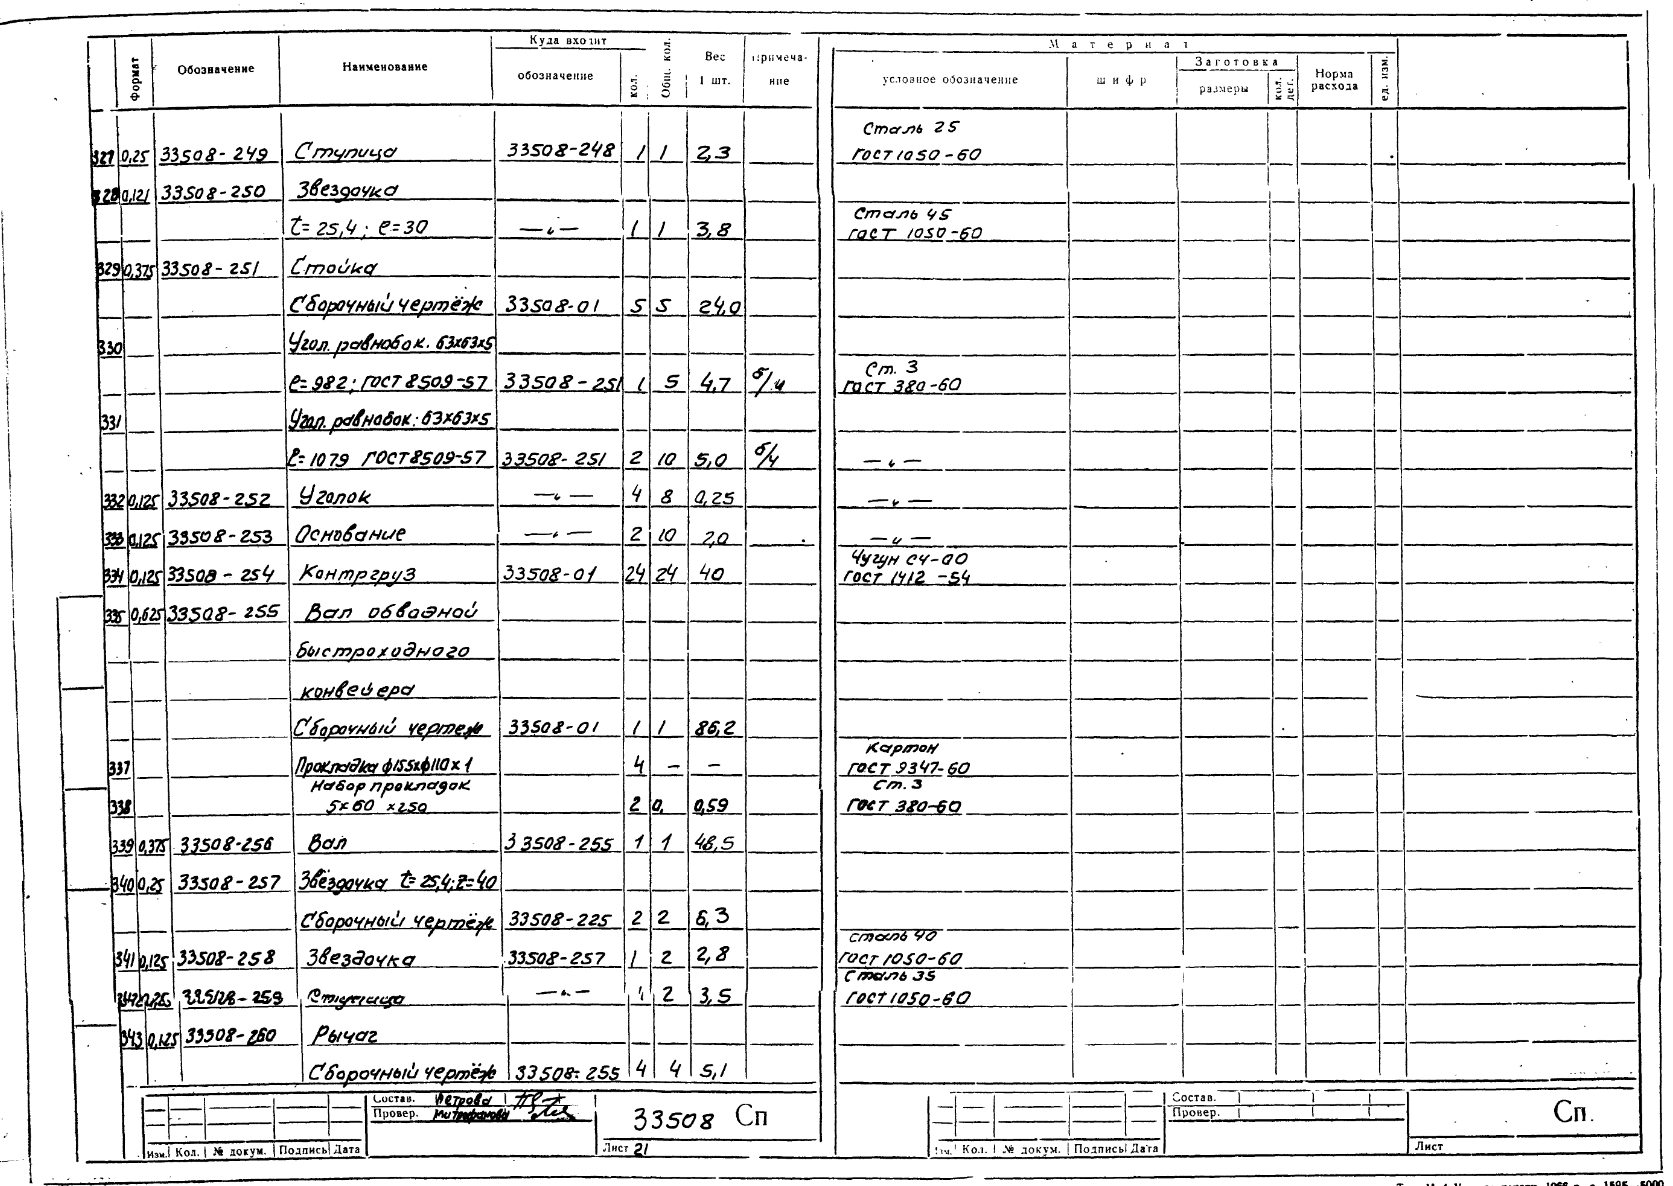 Формат Обозначение Наименование Куда входит обозначение кол. Общ. кол. Вес 1 шт. примеча-ние Материал условное обозначение шифр Заготовка размеры кол. дет. Норма расхода ед. изм.
Сталь 25
327 0,25 33508-249 Ступица 33508-248 1 1 2,3 ГОСТ 1050-60
328 0,121 33508-250 Звездочка
Сталь 45
t=25,4; e=30 —"— 1 1 3,8 ГОСТ 1050-60
329 0,375 33508-251 Стойка
Сборочный чертёж 33508-01 5 5 24,0
330 Угол. равнобок. 63х63х5
Ст. 3
e=982; ГОСТ 8509-57 33508-251 1 5 4,7 б/ч ГОСТ 380-60
331 Угол. равнобок. 63х63х5
e=1079 ГОСТ 8509-57 33508-251 2 10 5,0 б/ч —"—
332 0,125 33508-252 Уголок —"— 4 8 0,25 —"—
333 0,125 33508-253 Основание —"— 2 10 2,0 —"—
Чугун СЧ-00
334 0,125 33508-254 Контргруз 33508-01 24 24 40 ГОСТ 1412-54
335 0,625 33508-255 Вал обводной
быстроходного
конвейера
Сборочный чертеж 33508-01 1 1 86,2
Картон
337 Прокладка ф155хф110х1 4 – – ГОСТ 9347-60
Набор прокладок Ст. 3
338 5х60х250 2 0, 0,59 ГОСТ 380-60
339 0,375 33508-256 Вал 33508-255 1 1 48,5
340 0,25 33508-257 Звёздочка t=25,4; z=40
Сборочный чертёж 33508-225 2 2 6,3
Сталь 40
341 0,125 33508-258 Звездочка 33508-257 1 2 2,8 ГОСТ 1050-60
Сталь 35
342 Ступица —"— 1 2 3,5 ГОСТ 1050-60
343 0,125 33508-260 Рычаг
Сборочный чертёж 33508-255 4 4 5,1
Состав. Петрова
Провер. Митрофанова
33508 Сп
Изм. Кол. № докум. Подпись Дата Лист 21
Состав.
Провер.
Сп.
Изм. Кол. № докум. Подпись Дата Лист